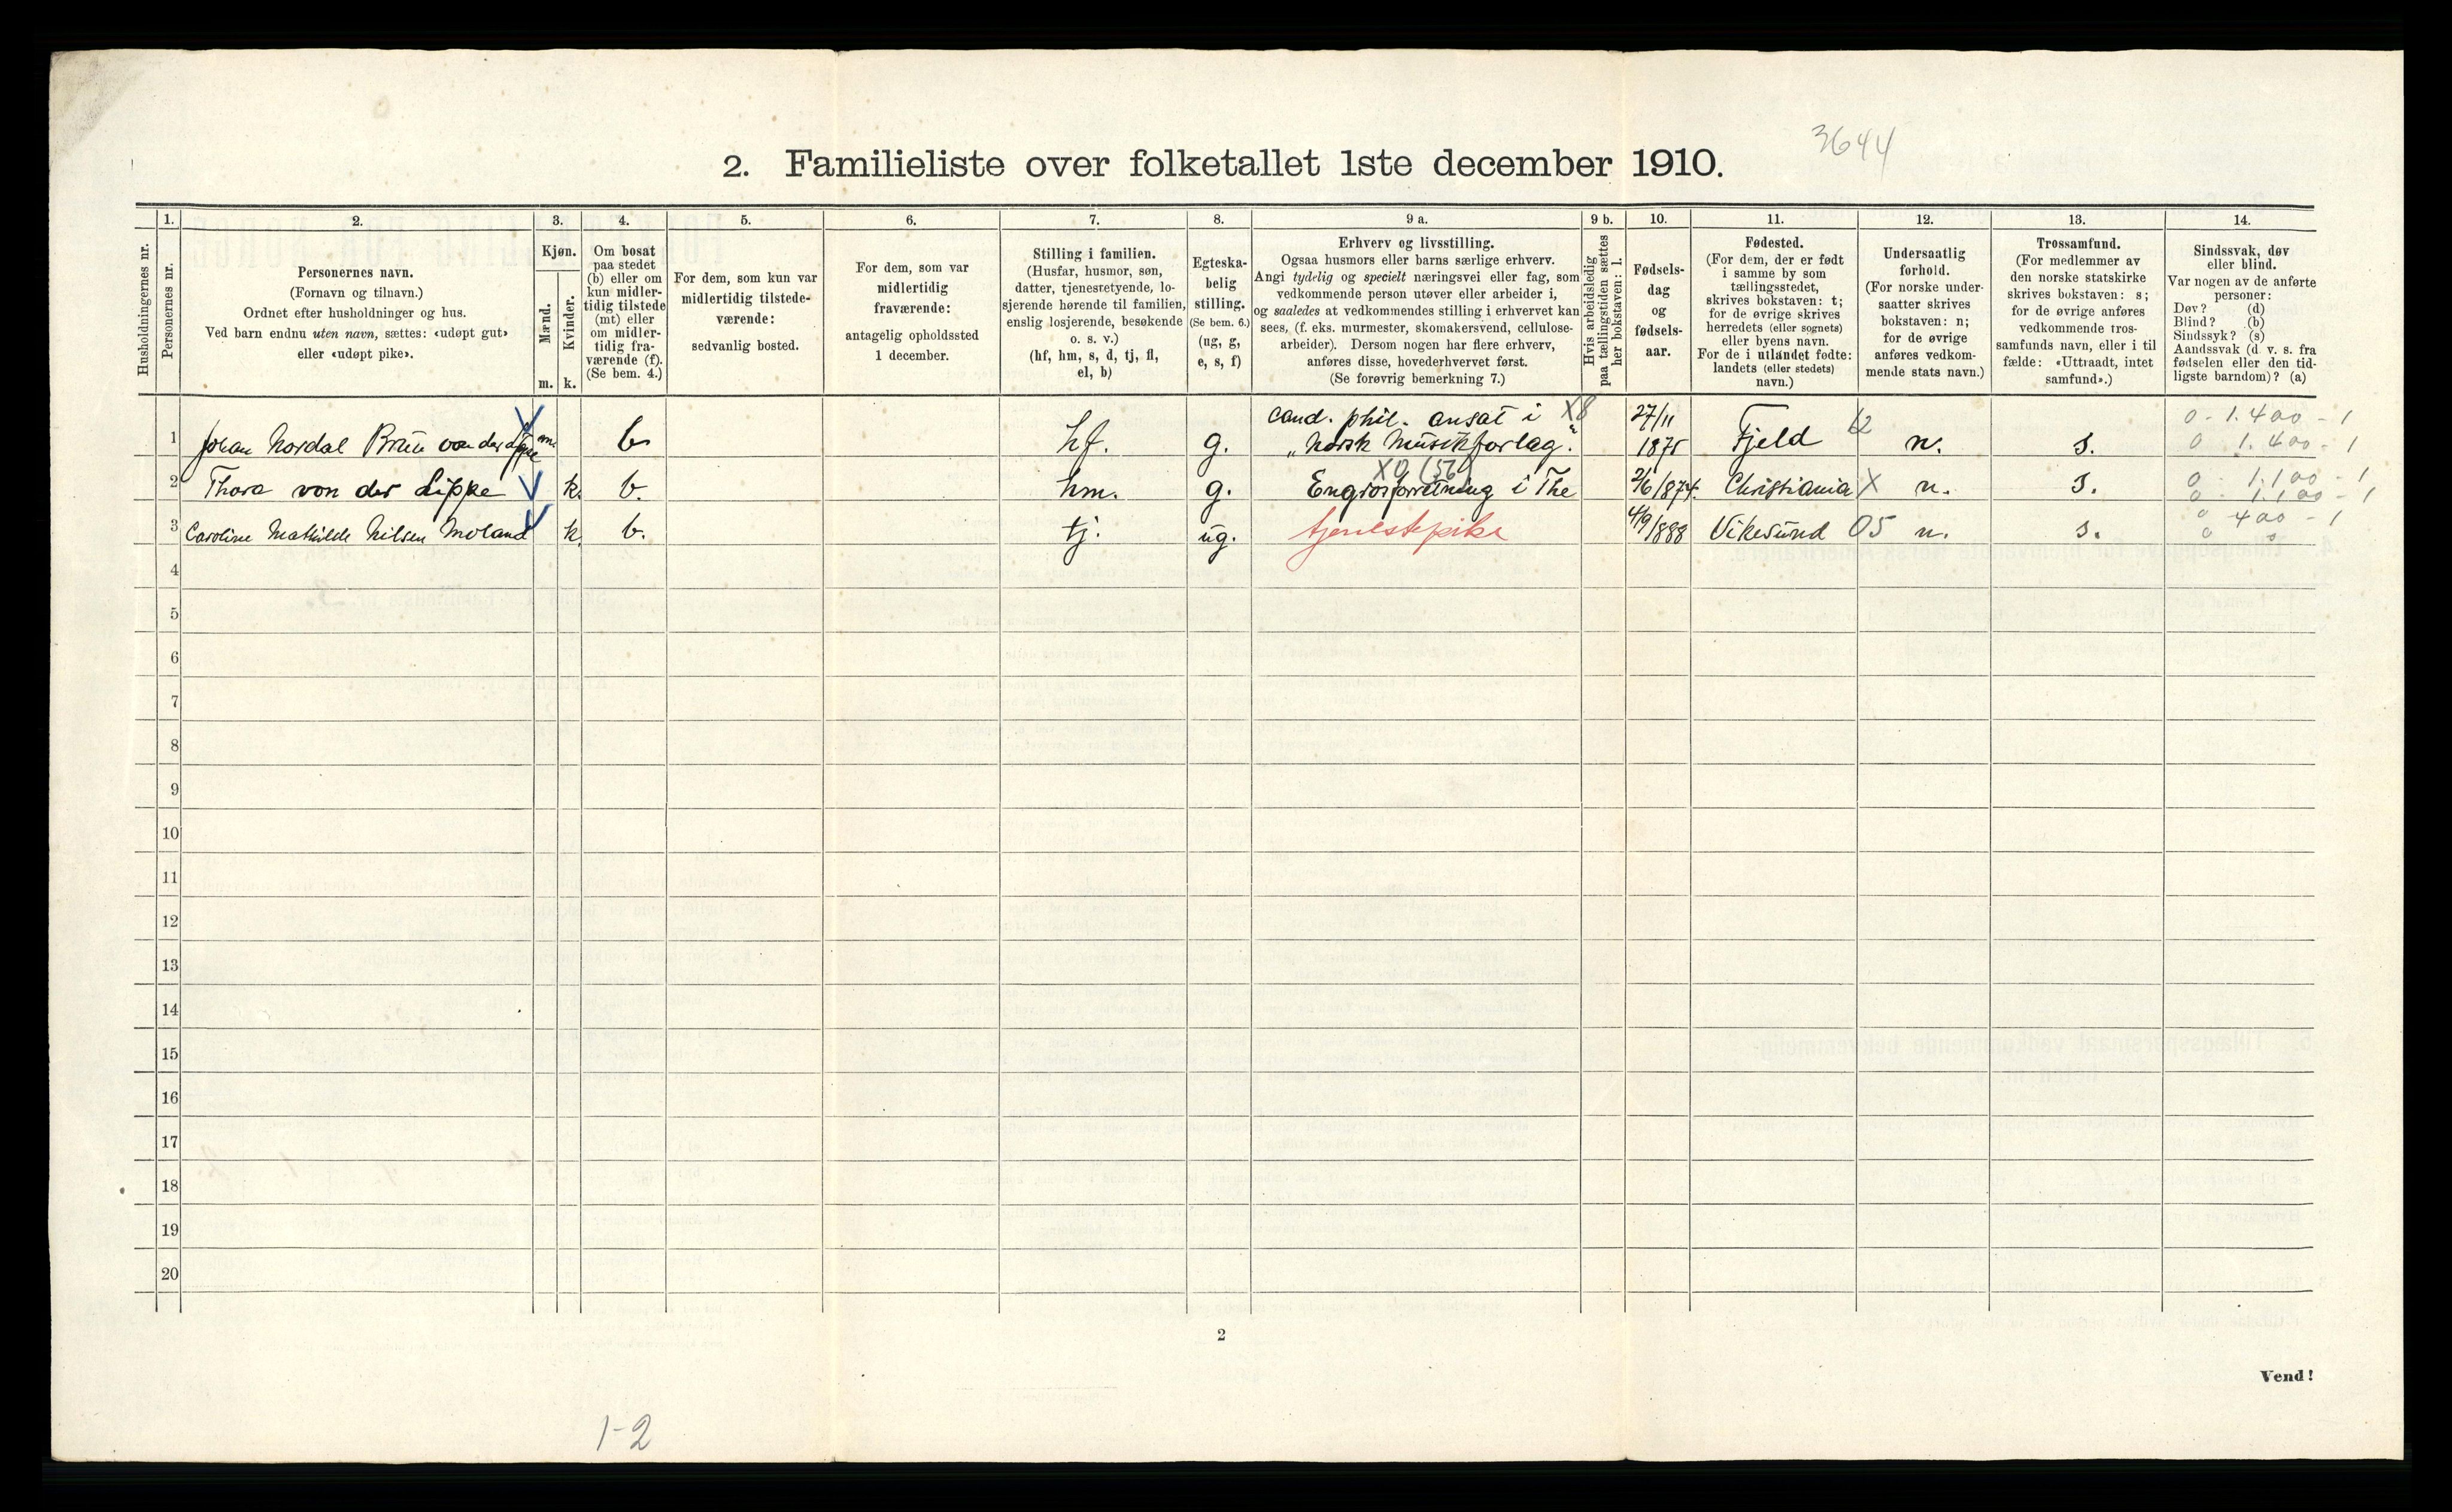 3644
2. Familieliste over folketallet 1ste december 1910.
1. 2. 3. 4. 5. 6. 7. 8. 9 a. 9 b. 10. 11. 12. 13. 14.
Husholdningernes nr.
Personernes nr.
Personernes navn.
(Fornavn og tilnavn.)
Ordnet efter husholdninger og hus.
Ved barn endnu uten navn, sættes: «udøpt gut»
eller «udøpt pike».
Kjøn.
Mænd.
Kvinder.
m. k.
Om bosat
paa stedet
(b) eller om
kun midler-
tidig tilstede
(mt) eller
om midler-
tidig fra-
værende (f).
(Se bem. 4.)
For dem, som kun var
midlertidig tilstede-
værende:
sedvanlig bosted.
For dem, som var
midlertidig
fraværende:
antagelig opholdssted
1 december.
Stilling i familien.
(Husfar, husmor, søn,
datter, tjenestetyende, lo-
sjerende hørende til familien,
enslig losjerende, besøkende
o. s. v.)
(hf, hm, s, d, tj, fl,
el, b)
Egteska-
belig
stilling.
(Se bem. 6.)
(ug, g,
e, s, f)
Erhverv og livsstilling.
Ogsaa husmors eller barns særlige erhverv.
Angi tydelig og specielt næringsvei eller fag, som
vedkommende person utøver eller arbeider i,
og saaledes at vedkommendes stilling i erhvervet kan
sees, (f. eks. murmester, skomakersvend, cellulose-
arbeider). Dersom nogen har flere erhverv,
anføres disse, hovederhvervet først.
(Se forøvrig bemerkning 7.)
Hvis arbeidsledig
paa tællingstiden sættes
her bokstaven: l.
Fødsels-
dag
og
fødsels-
aar.
Fødested.
(For dem, der er født
i samme by som
tællingsstedet,
skrives bokstaven: t;
for de øvrige skrives
herredets (eller sognets)
eller byens navn.
For de i utlandet fødte:
landets (eller stedets)
navn.)
Undersaatlig
forhold.
(For norske under-
saatter skrives
bokstaven: n;
for de øvrige
anføres vedkom-
mende stats navn.)
Trossamfund.
(For medlemmer av
den norske statskirke
skrives bokstaven: s;
for de øvrige anføres
vedkommende tros-
samfunds navn, eller i til
fælde: «Uttraadt, intet
samfund».)
Sindssvak, døv
eller blind.
Var nogen av de anførte
personer:
Døv? (d)
Blind? (b)
Sindssyk? (s)
Aandssvak (d. v. s. fra
fødselen eller den tid-
ligste barndom)? (a)
cand. phil. ansat i X8 27/11 0 - 1.400 - 1
1 Johan Nordal Brun von der Lippe m. b hf. g. „Norsk Musikforlag.“ 1875 Fjeld 12 n. s. 0 1.400 - 1
X0 (56) 0 - 1.100 - 1
2 Thora von der Lippe k. b. hm. g. Engrosforretning i The 2/6/874. Christiania X n. s. 0 - 1.100 - 1
0 400 - 1
3 Caroline Mathilde Nilsen Moland k. b. tj. ug. tjenestepike 4/9/888 Vikesund 05 n. s. 0 0
4
5
6
7
8
9
10
11
12
13
14
15
16
17
18
19
20
2
Vend!
1-2